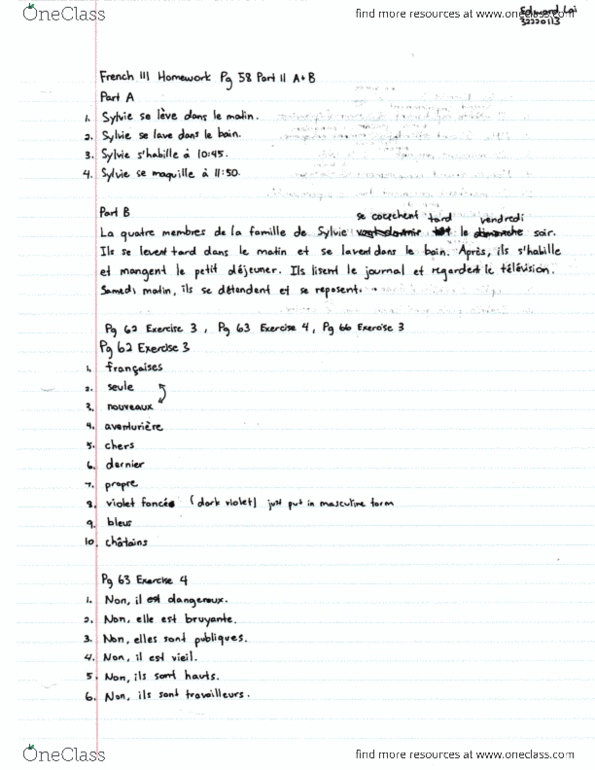 OneClass
find more resources at www.oneclass.com
Edward Lai
32220113
French 111 Homework Pg 58 Part II A+B
Part A
1. Sylvie se lève dans le matin.
2. Sylvie se lave dans le bain.
3. Sylvie s'habille à 10:45.
4. Sylvie se maquille à 11:50.
Part B
se couchent tard vendredi
La quatre membres de la famille de Sylvie le dimanche soir.
Ils se levent tard dans le matin et se lavent dans le bain. Après, ils s'habille
et mangent le petit déjeuner. Ils lisent le journal et regardent le télévision.
Samedi matin, ils se détendent et se reposent.
Pg 62 Exercise 3, Pg 63 Exercise 4, Pg 66 Exercise 3
Pg 62 Exercise 3
1. françaises
2. seule
3. nouveaux
4. aventurière
5. chers
6. dernier
7. propre
8. violet foncé (dark violet) just put in masculine form
9. bleus
10. châtains
Pg 63 Exercise 4
1. Non, il est dangereux.
2. Non, elle est bruyante.
3. Non, elles sont publiques.
4. Non, il est vieil.
5. Non, ils sont hauts.
6. Non, ils sont travailleurs.
OneClass
find more resources at www.oneclass.com